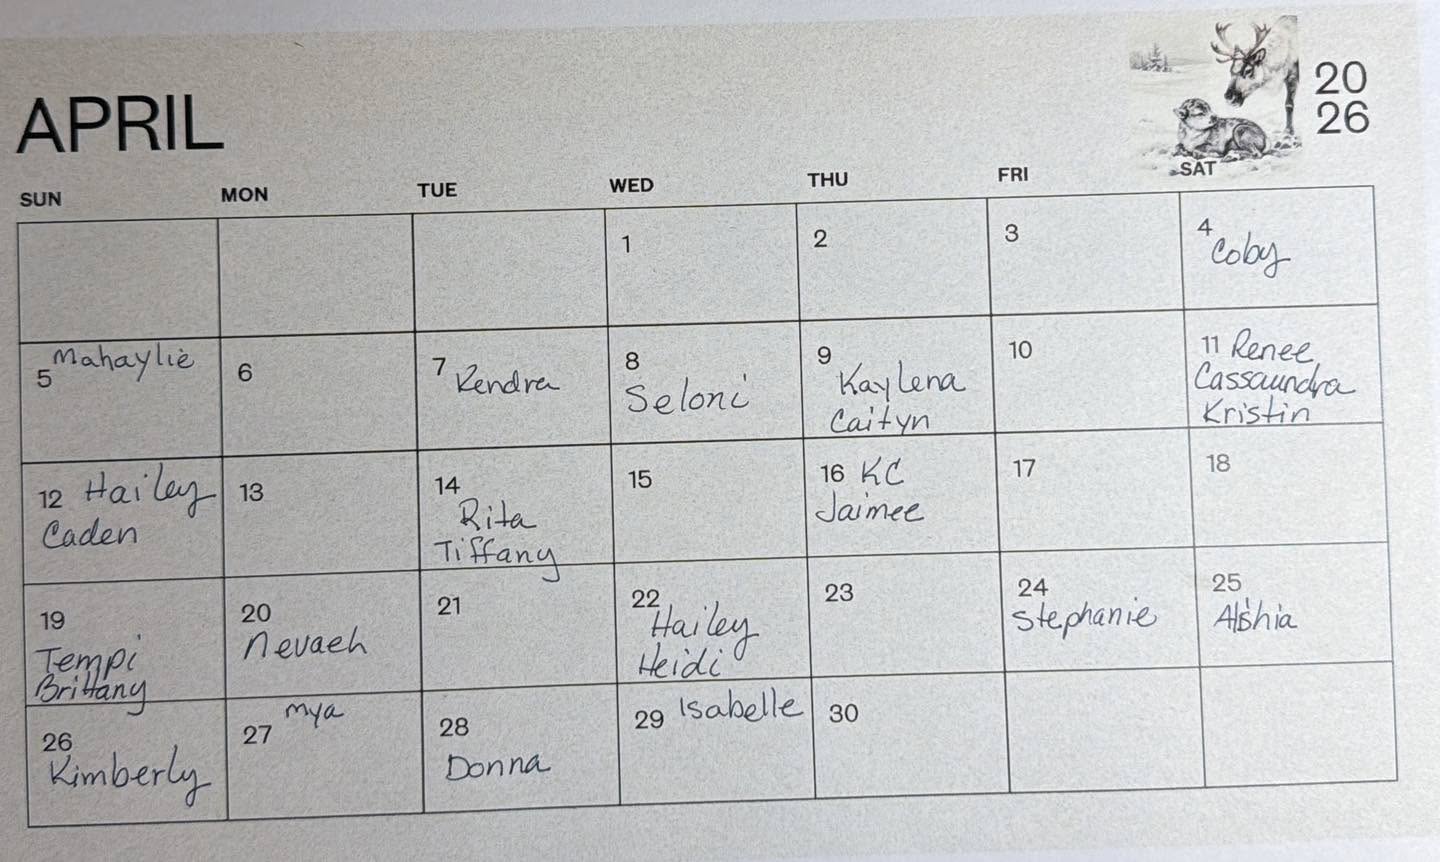 APRIL
20
26
SUN MON TUE WED THU FRI SAT
1
2
3
4
Coby
5 Mahaylie
6
7
Kendra
8
Seloni
9
Kaylena
Caityn
10
11 Renee
Cassaundra
Kristin
12 Hailey
Caden
13
14
Rita
Tiffany
15
16 KC
Jaimee
17
18
19
Tempi
Brittany
20
Nevaeh
21
22
Hailey
Heidi
23
24
Stephanie
25
Alshia
26
Kimberly
27 Mya
28
Donna
29 Isabelle
30